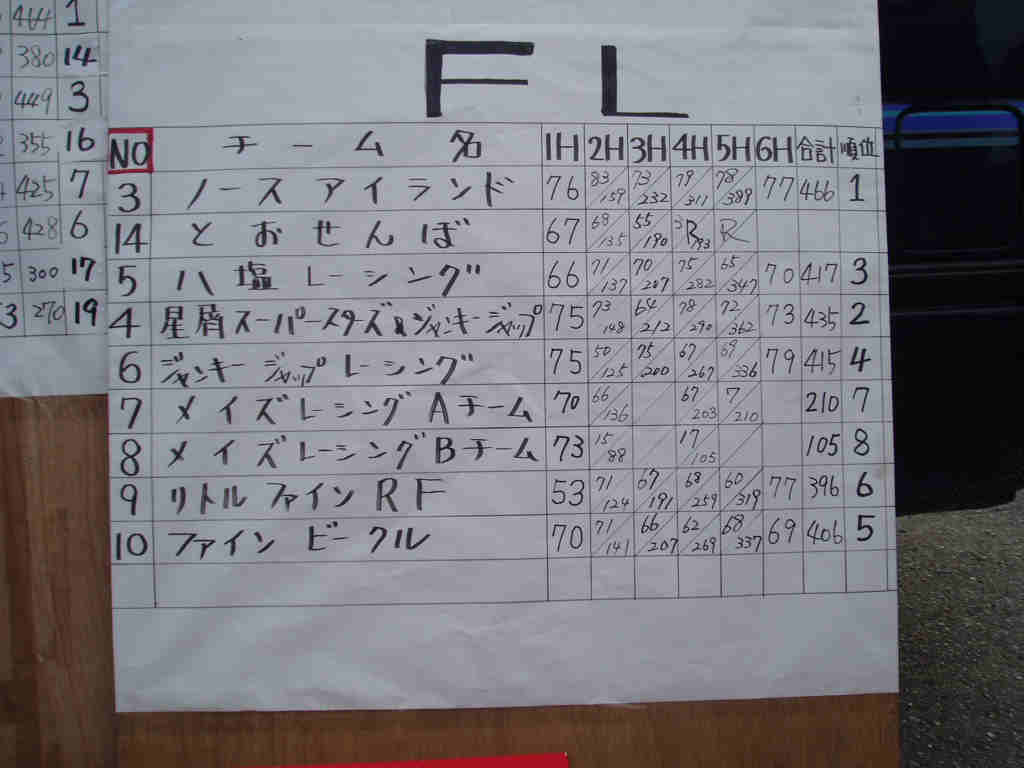 464 1
380 14
449 3
355 16
425 7
428 6
300 17
270 19
FL
NO チーム名 1H 2H 3H 4H 5H 6H 合計 順位
3 ノースアイランド 76 83/159 73/232 79/311 78/389 77 466 1
14 とおせんぼ 67 68/135 55/190 3R/193 R
5 八塩レーシング 66 71/137 70/207 75/282 65/347 70 417 3
4 星屑スーパースターズ&ジャンキージャップ 75 73/148 64/212 78/290 72/362 73 435 2
6 ジャンキージャップレーシング 75 50/125 75/200 67/267 69/336 79 415 4
7 メイズレーシングAチーム 70 66/136 / 67/203 7/210 210 7
8 メイズレーシングBチーム 73 15/88 / 17/105 / 105 8
9 リトルファインRF 53 71/124 67/191 68/259 60/319 77 396 6
10 ファインビークル 70 71/141 66/207 62/269 68/337 69 406 5